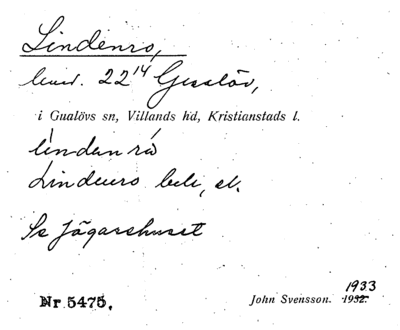 Lindenro,
lmd. 22¹⁴ Gualöv,
i Gualövs sn, Villands hd, Kristianstads l.
lindanrō
Lindenro beb., el.
Se Jägarehuset
Nr 5475.
John Svensson. 1932. 1933